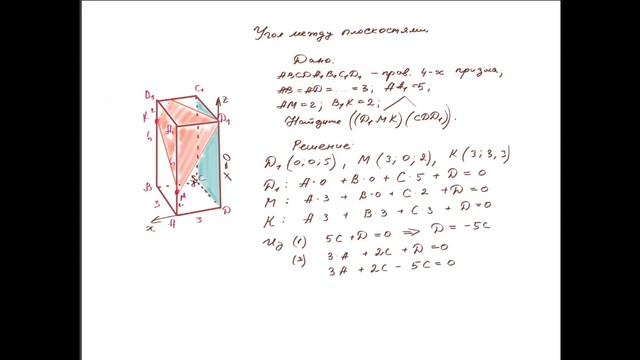 Угол между плоскостями.
Дано:
ABCDA₁B₁C₁D₁ – прав. 4-х призма,
AB=AD=...=3; AA₁=5,
AM=2; B₁K=2;
Найдите ((D₁MK)(CDD₁)).
Решение:
D₁(0;0;5), M(3;0;2), K(3;3;3)
D₁: A·0 + B·0 + C·5 + D=0
M: A·3 + B·0 + C·2 + D=0
K: A3 + B·3 + C·3 + D=0
Из (1) 5C+D=0 ⇒ D=-5C
(2) 3·A + 2C + D=0
3A + 2C - 5C=0
B₁
C₁
z
K
A₁
D₁
x=0
B
C
M
3
A
3
D
x